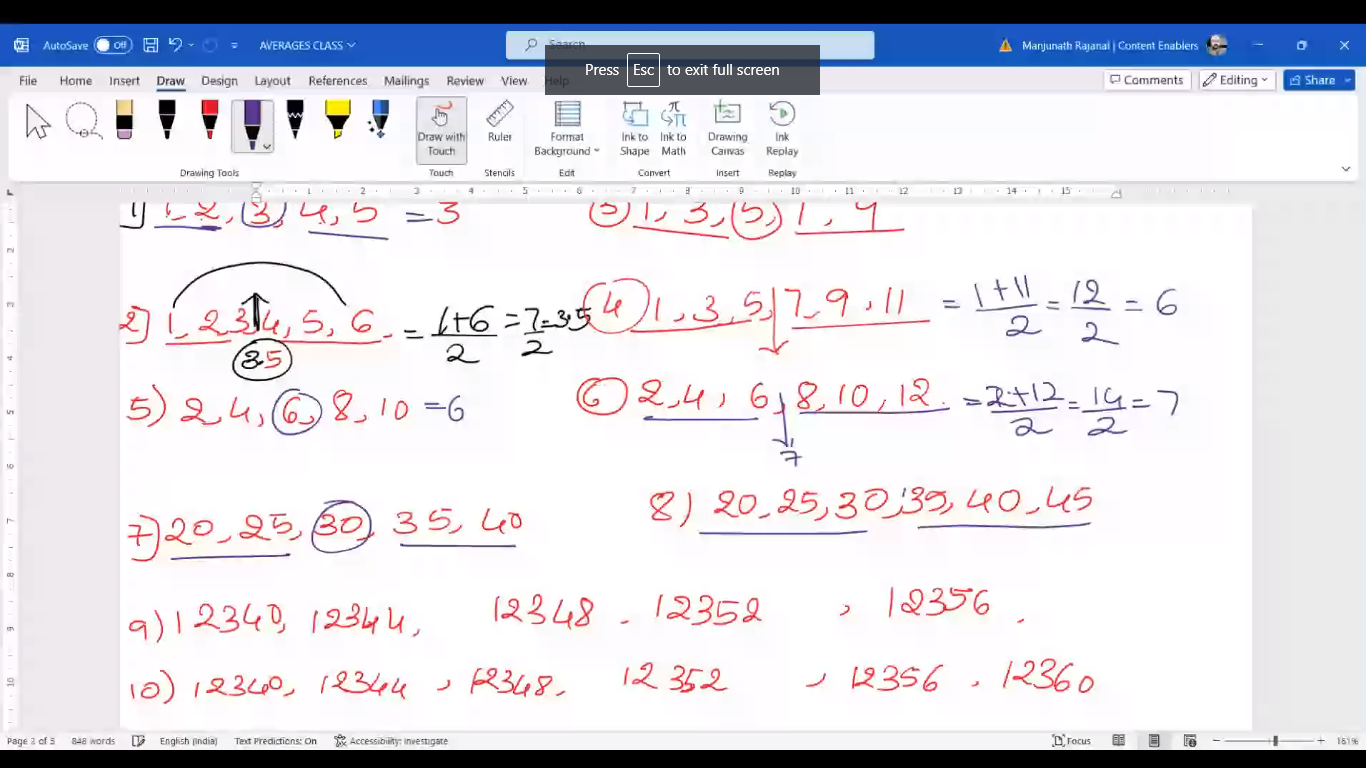 AutoSave Off AVERAGES CLASS Search Manjunath Rajanal | Content Enablers
Press Esc to exit full screen
File Home Insert Draw Design Layout References Mailings Review View Help Comments Editing Share
Draw with Touch Ruler Format Background Ink to Shape Ink to Math Drawing Canvas Ink Replay
Drawing Tools Touch Stencils Edit Convert Insert Replay
1 2 3 4 5 6 7 8 9 10 11 12 13 14 15
1) 1, 2, 3, 4, 5 = 3
3) 1, 3, 5, 7, 9
2] 1, 2 3 4, 5, 6. = 1+6/2 = 7/2 = 3.5
3.5
4 1, 3, 5, 7, 9, 11 = 1+11/2 = 12/2 = 6
5) 2, 4, 6, 8, 10 = 6
6 2, 4, 6, 8, 10, 12. = 2+12/2 = 14/2 = 7
7
7) 20, 25, 30, 35, 40
8) 20, 25, 30, 35, 40, 45
9) 12340, 12344, 12348, 12352, 12356,
10) 12340, 12344, 12348, 12352, 12356, 12360
Page 2 of 5 848 words English (India) Text Predictions: On Accessibility: Investigate Focus 161%